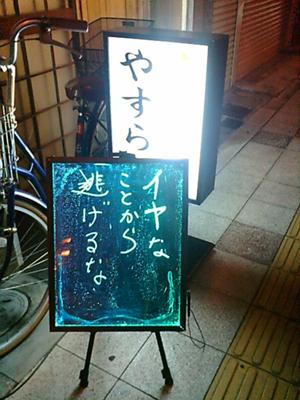 やすら
イヤな
ことから
逃げるな